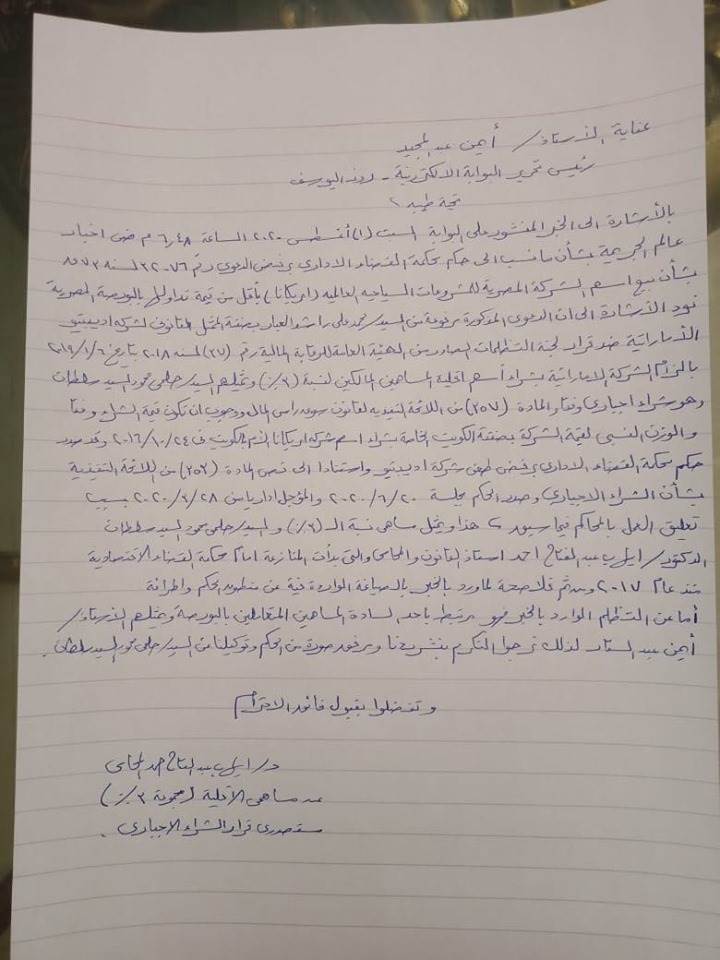 عناية الأستاذ / أيمن عبد المجيد
رئيس تحرير البوابة الالكترونية - روز اليوسف
تحية طيبة ،
بالأشارة الى الخبر المنشور على البوابة السبت (١) أغسطس ٢٠٢٠ الساعة ٦,٤٨ م ضمن اخبار
عالم الجريمة بشأن ما نسب الى حكم محكمة القضاء الادارى برفض الدعوى رقم ٣٢٠٧٦ لسنة ٧٣ ق
بشأن بيع اسهم الشركة المصرية للمشروعات السياحية العالمية (امريكانا) بأقل من قيمة تداولها بالبورصة المصرية
نود الأشارة الى ان الدعوى المذكورة مرفوعة من السيد / محمد على راشد العبار بصفته الممثل القانونى لشركة ادبتيو
الأماراتية ضد قرار لجنة التظلمات الصادر من الهيئة العامة للرقابة المالية رقم (٢٧) لسنة ٢٠١٨ بتاريخ ٢٠١٩/١/٦
بالزام الشركة الاماراتية بشراء أسهم اقلية المساهمين المالكين لنسبة (٣٪) ويمثلهم السيد / حلمى محمود السيد سلطان
وهو شراء اجبارى وفقا لمادة (٣٥٧) من اللائحة التنفيذية لقانون سوق رأس المال ووجوب ان تكون قيمة الشراء وفقا
و الوزن النسبى لقيمة الشركة بصفقة الكويت الخاصة بشراء اسهم شركة امريكانا الأم بالكويت فى ٢٠١٦/١٠/٢٤ وقد صدر
حكم محكمة القضاء الادارى برفض طعن شركة ادبتيو واستنادا الى نص المادة (٣٥٧) من اللائحة التنفيذية
بشأن الشراء الاجبارى وصدر الحكم بجلسة ٢٠٢٠/٦/٢٠ والمؤجل اداريا من ٢٠٢٠/٣/٢٨ بسبب
تعليق العمل بالمحاكم فيما سبق ، هذا ويمثل مساهمى نسبة الـ (٣٪) والسيد / حلمى محمود السيد سلطان
الدكتور / ايهاب عبد الفتاح احمد استاذ القانون والمحامى والتى بدأت المنازعة امام محكمة القضاء الاقتصادية
منذ عام ٢٠١٧ ومن ثم فلا صحة لما ورد بالخبر بالصياغة الواردة فيه عن منطوق الحكم واطرافه
أما عن التظلم الوارد بالخبر فهو مرتبط باحد السادة المساهمين المتعاملين بالبورصة ويمثلهم الأستاذ /
أيمن عبد الستار لذلك نرجوا التكرم بنشر ردنا ومرفق صورة من الحكم وتوكيلنا من السيد / حلمى محمود السيد سلطان .
وتفضلوا بقبول فائق الاحترام
د / ايهاب عبد الفتاح احمد المحامى
عن مساهمى الأقلية (مجموعة ٣٪)
مستصدرى قرار الشراء الاجبارى .